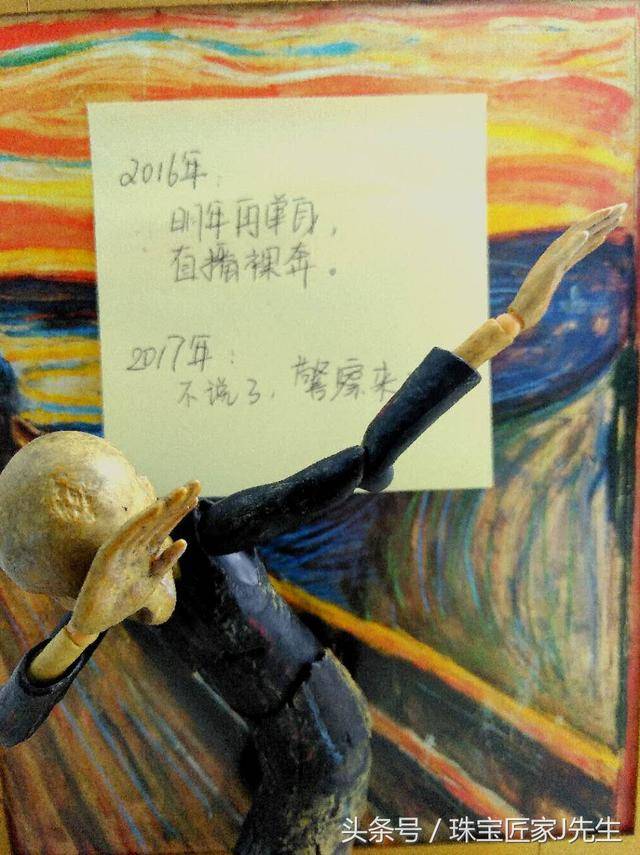 2016年：
明年再单身，
直播裸奔。
2017年：
不说了，警察来
头条号 / 珠宝匠家J先生